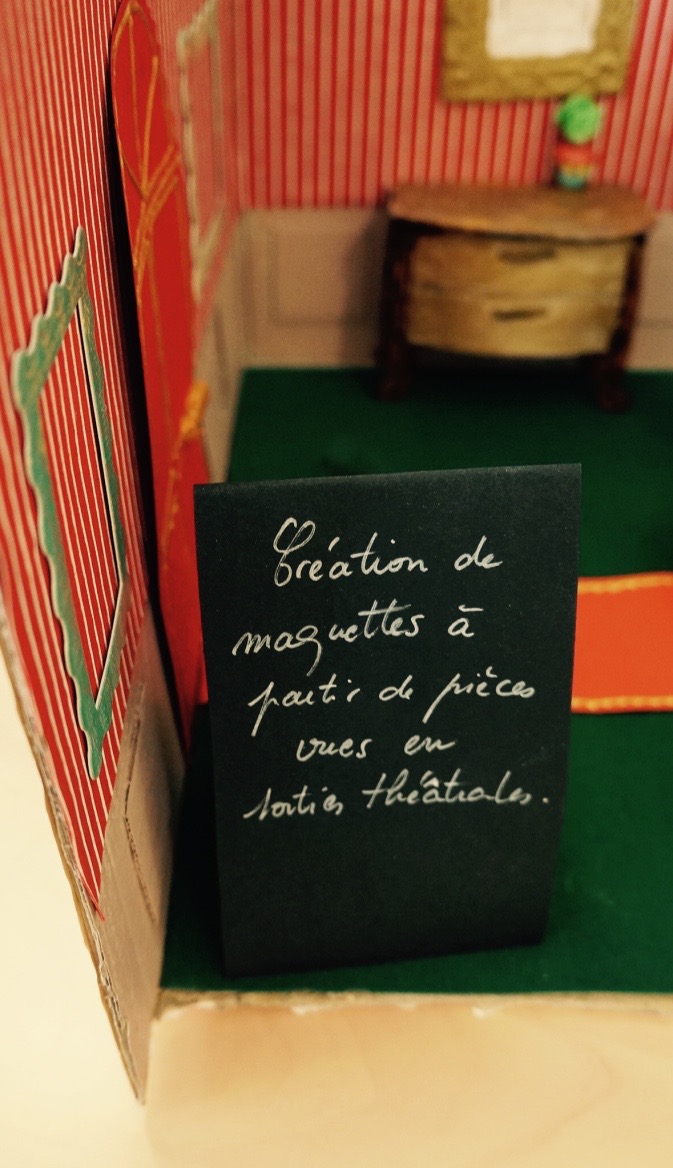 Création de
maquettes à
partir de pièces
vues en
sorties théâtrales.